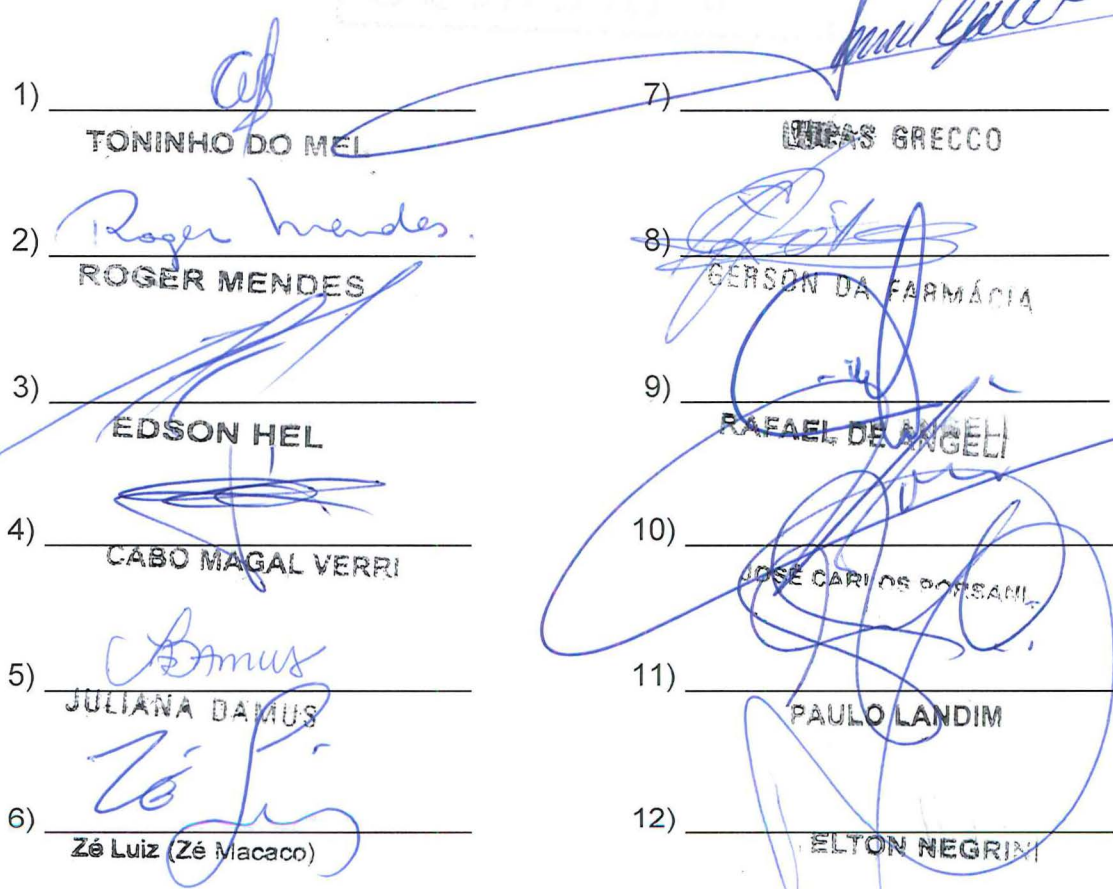 1)
TONINHO DO MEL
2) Roger Mendes.
ROGER MENDES
3)
EDSON HEL
4)
CABO MAGAL VERRI
5) Damus
JULIANA DAMUS
6) Zé Luiz
Zé Luiz (Zé Macaco)
7)
LUCAS GRECCO
8)
GERSON DA FARMÁCIA
9)
RAFAEL DE ANGELI
10)
JOSÉ CARLOS PORSANI
11)
PAULO LANDIM
12)
ELTON NEGRINI